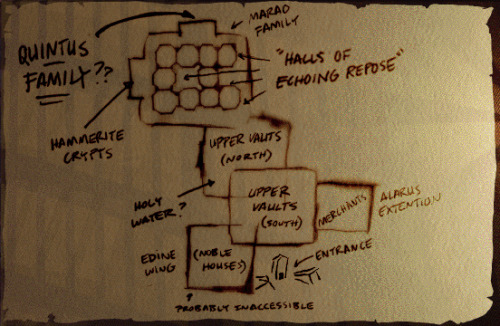 MARAD
FAMILY
QUINTUS
FAMILY??
"HALLS OF
ECHOING REPOSE"
HAMMERITE
CRYPTS
UPPER VAULTS
(NORTH)
HOLY
WATER?
UPPER
VAULTS
(SOUTH)
MERCHANTS
ALARUS
EXTENTION
EDINE
WING
(NOBLE
HOUSES)
ENTRANCE
PROBABLY INACCESSIBLE